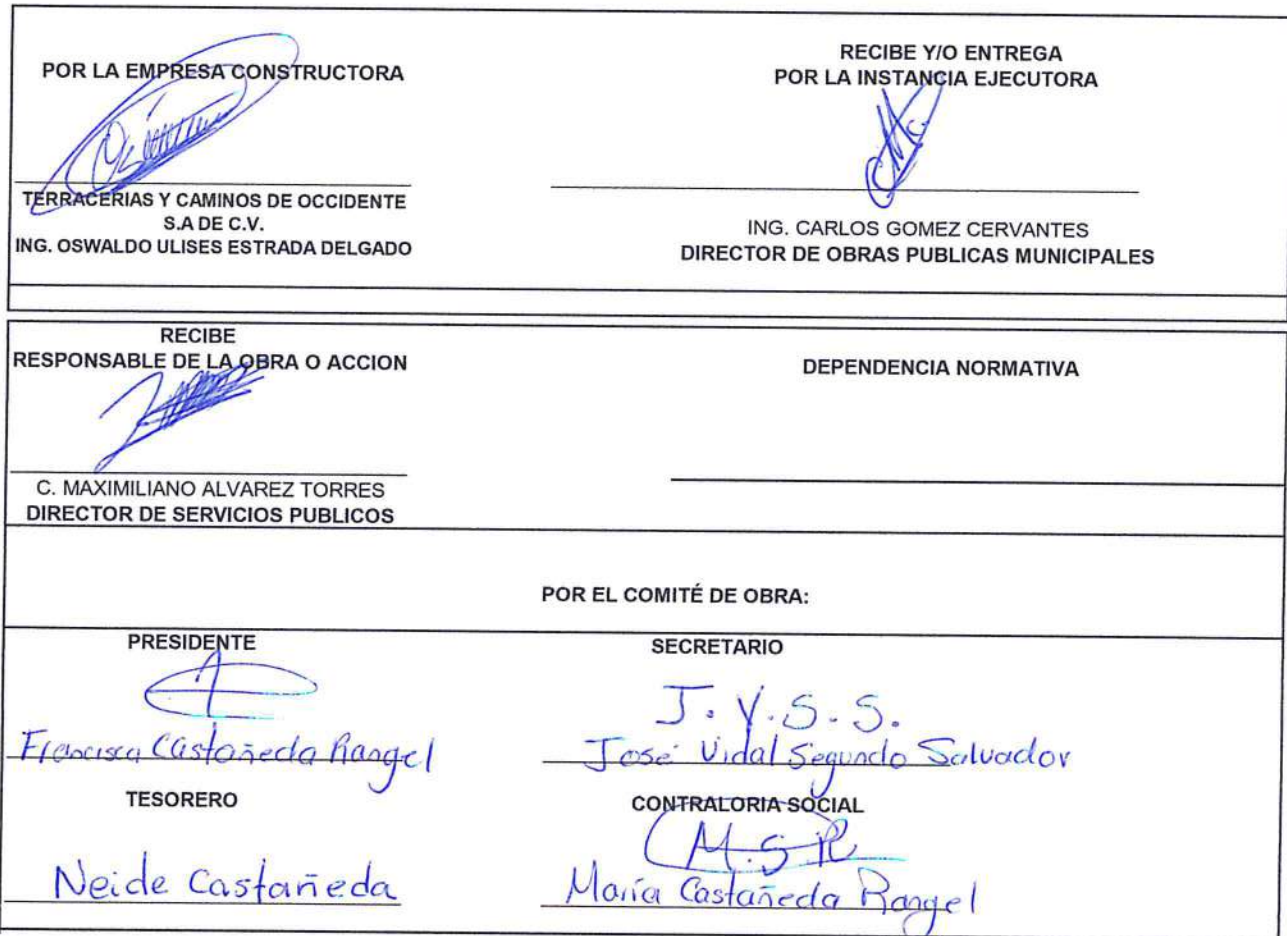 POR LA EMPRESA CONSTRUCTORA
TERRACERIAS Y CAMINOS DE OCCIDENTE
S.A DE C.V.
ING. OSWALDO ULISES ESTRADA DELGADO
RECIBE Y/O ENTREGA
POR LA INSTANCIA EJECUTORA
ING. CARLOS GOMEZ CERVANTES
DIRECTOR DE OBRAS PUBLICAS MUNICIPALES
RECIBE
RESPONSABLE DE LA OBRA O ACCION
C. MAXIMILIANO ALVAREZ TORRES
DIRECTOR DE SERVICIOS PUBLICOS
DEPENDENCIA NORMATIVA
POR EL COMITÉ DE OBRA:
PRESIDENTE
Francisca Castañeda Rangel
SECRETARIO
J. V. S. S.
José Vidal Segundo Salvador
TESORERO
Neide Castañeda
CONTRALORIA SOCIAL
M.S.R
María Castañeda Rangel